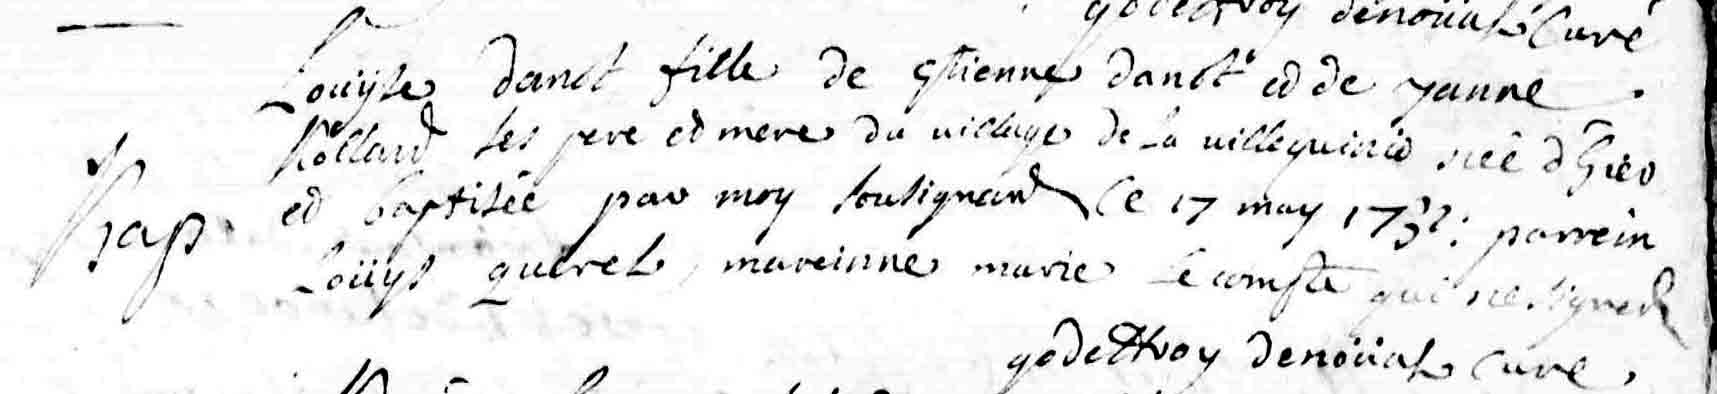 godeffroy denoüal Curé
Louÿse danct fille de estienne danct et de janne
Rollard ses pere et mere du village de la villequinio née d'hier
Bap. et baptisée par moy sousignant Ce 17 may 1732: parrein
Loüys querel, mareinne marie Le comste qui ne signent
godeffroy denoüal Curé